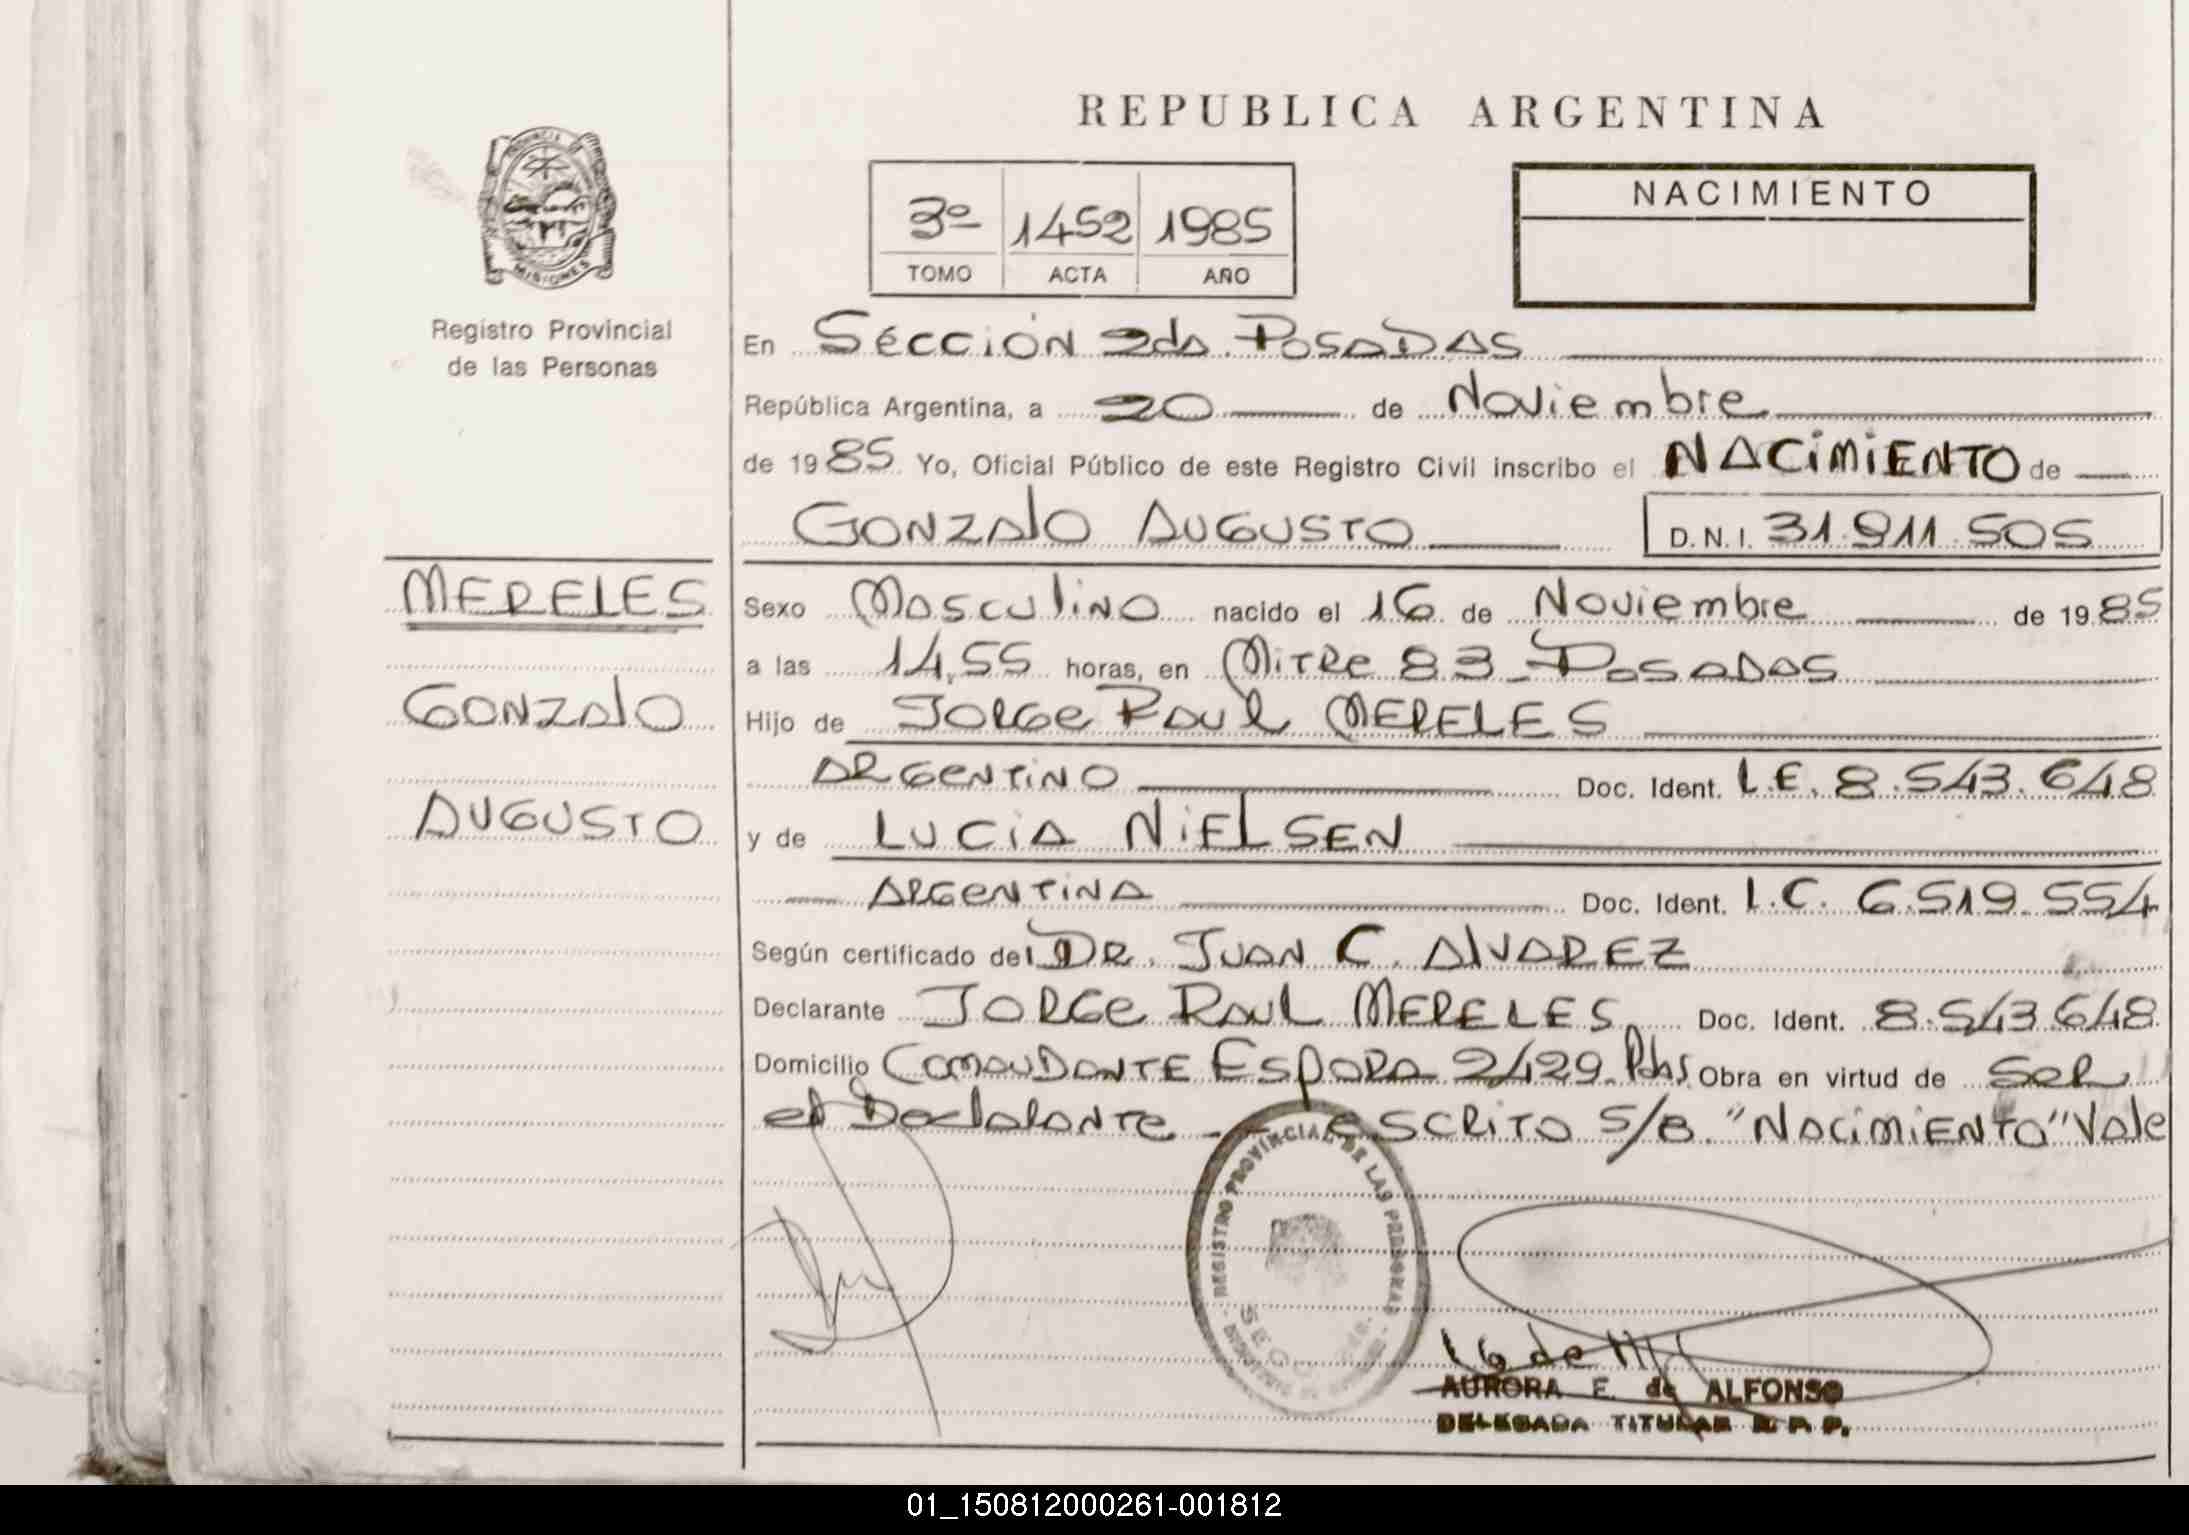 REPUBLICA ARGENTINA
PROVINCIA
MISIONES
Registro Provincial
de las Personas
3º 1452 1985
TOMO ACTA AÑO
NACIMIENTO
En Sección 2da. Posadas
República Argentina, a 20 de Noviembre
de 1985 Yo, Oficial Público de este Registro Civil inscribo el NACIMIENTO de
GONZALO AUGUSTO D.N.I. 31.911.505
MERELES
GONZALO
AUGUSTO
Sexo Masculino nacido el 16 de Noviembre de 1985
a las 14,55 horas, en Mitre 83 - Posadas
Hijo de Jorge Raul MERELES
ARGENTINO Doc. Ident. L.E. 8.543.648
y de LUCIA NIELSEN
ARGENTINA Doc. Ident. L.C. 6.519.554
Según certificado del DR. JUAN C. ALVAREZ
Declarante JORGE RAUL MERELES Doc. Ident. 8.543.648
Domicilio COMANDANTE ESPORA 2429. Pdas Obra en virtud de SER
el Declarante -- escrito S/B. "NACIMIENTO" Vale
REGISTRO PROVINCIAL DE LAS PERSONAS
AURORA E. de ALFONSO
DELEGADA TITULAR R. P. P.
01_150812000261-001812